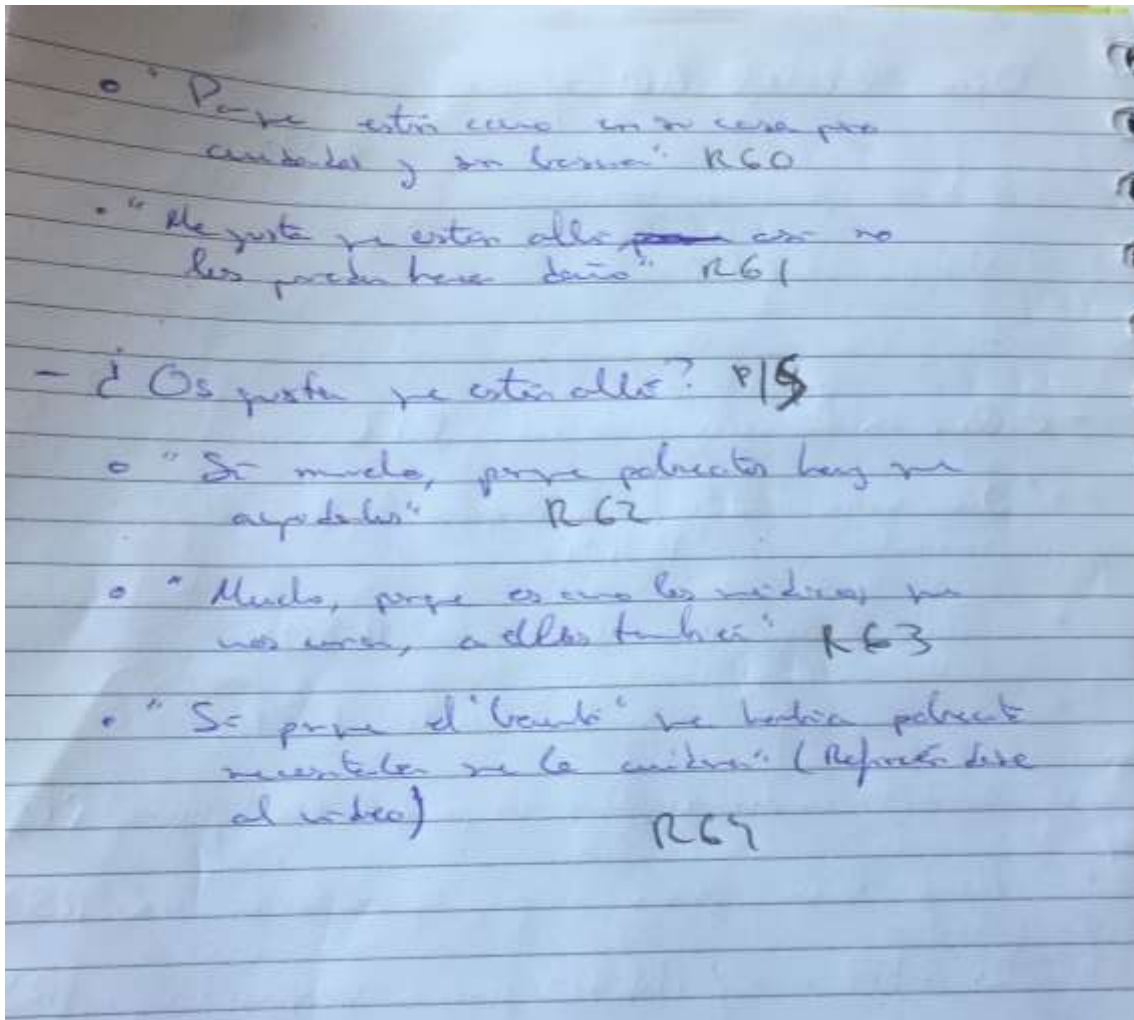 • "Porque están como en su casa pero
cuidados y sin basura" R60
• "Me gusta que estén allí así no
les pueden hacer daño" R61
- ¿Os gusta que estén allí? P15
• "Sí mucho, porque pobrecitos hay que
ayudarlos" R62
• "Mucho, porque es como los médicos que
nos curan, a ellos también" R63
• "Sí porque el" que había pobrecito
necesitaba que lo cuidaran" (Refiriéndose
al video)
R64